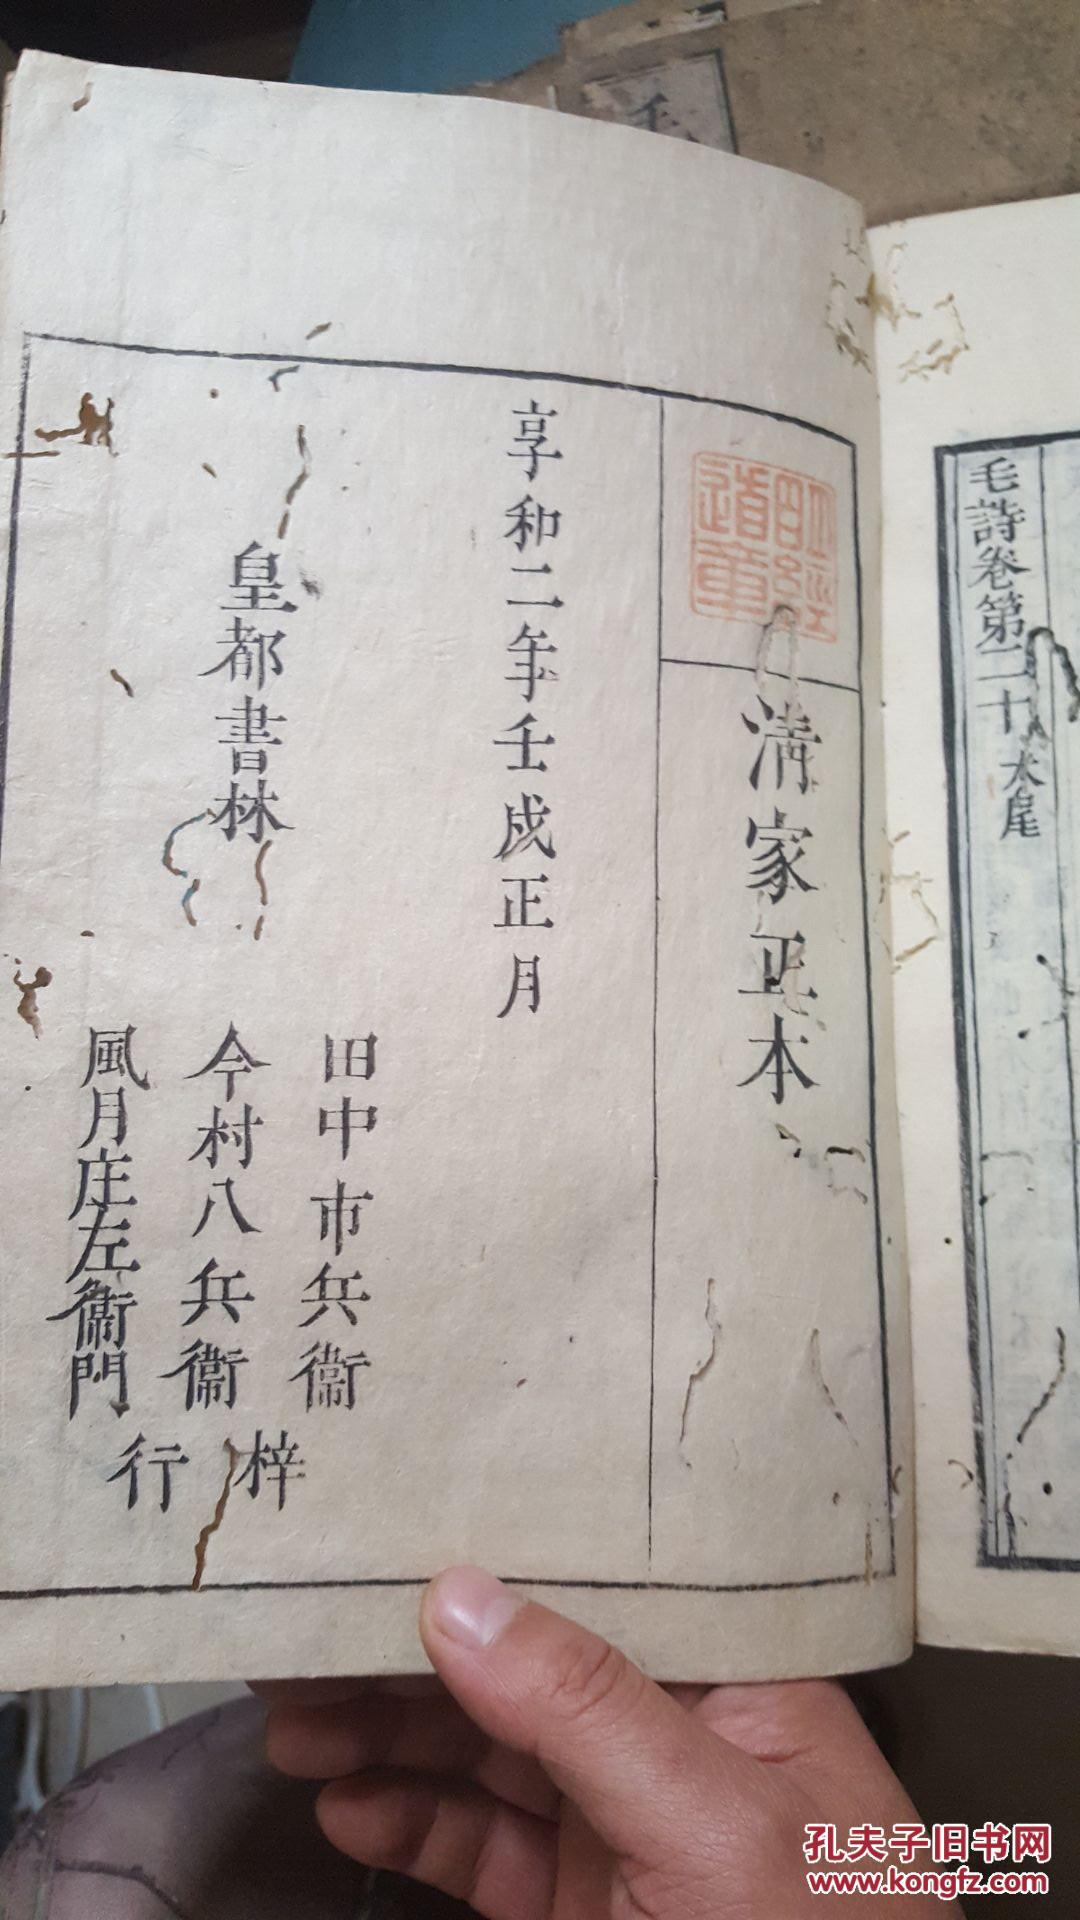 毛詩卷第二十 大尾
清家正本
享和二年壬戌正月
皇都書林
田中市兵衞
今村八兵衞
風月庄左衞門
梓行
毛
孔夫子旧书网
www.kongfz.com